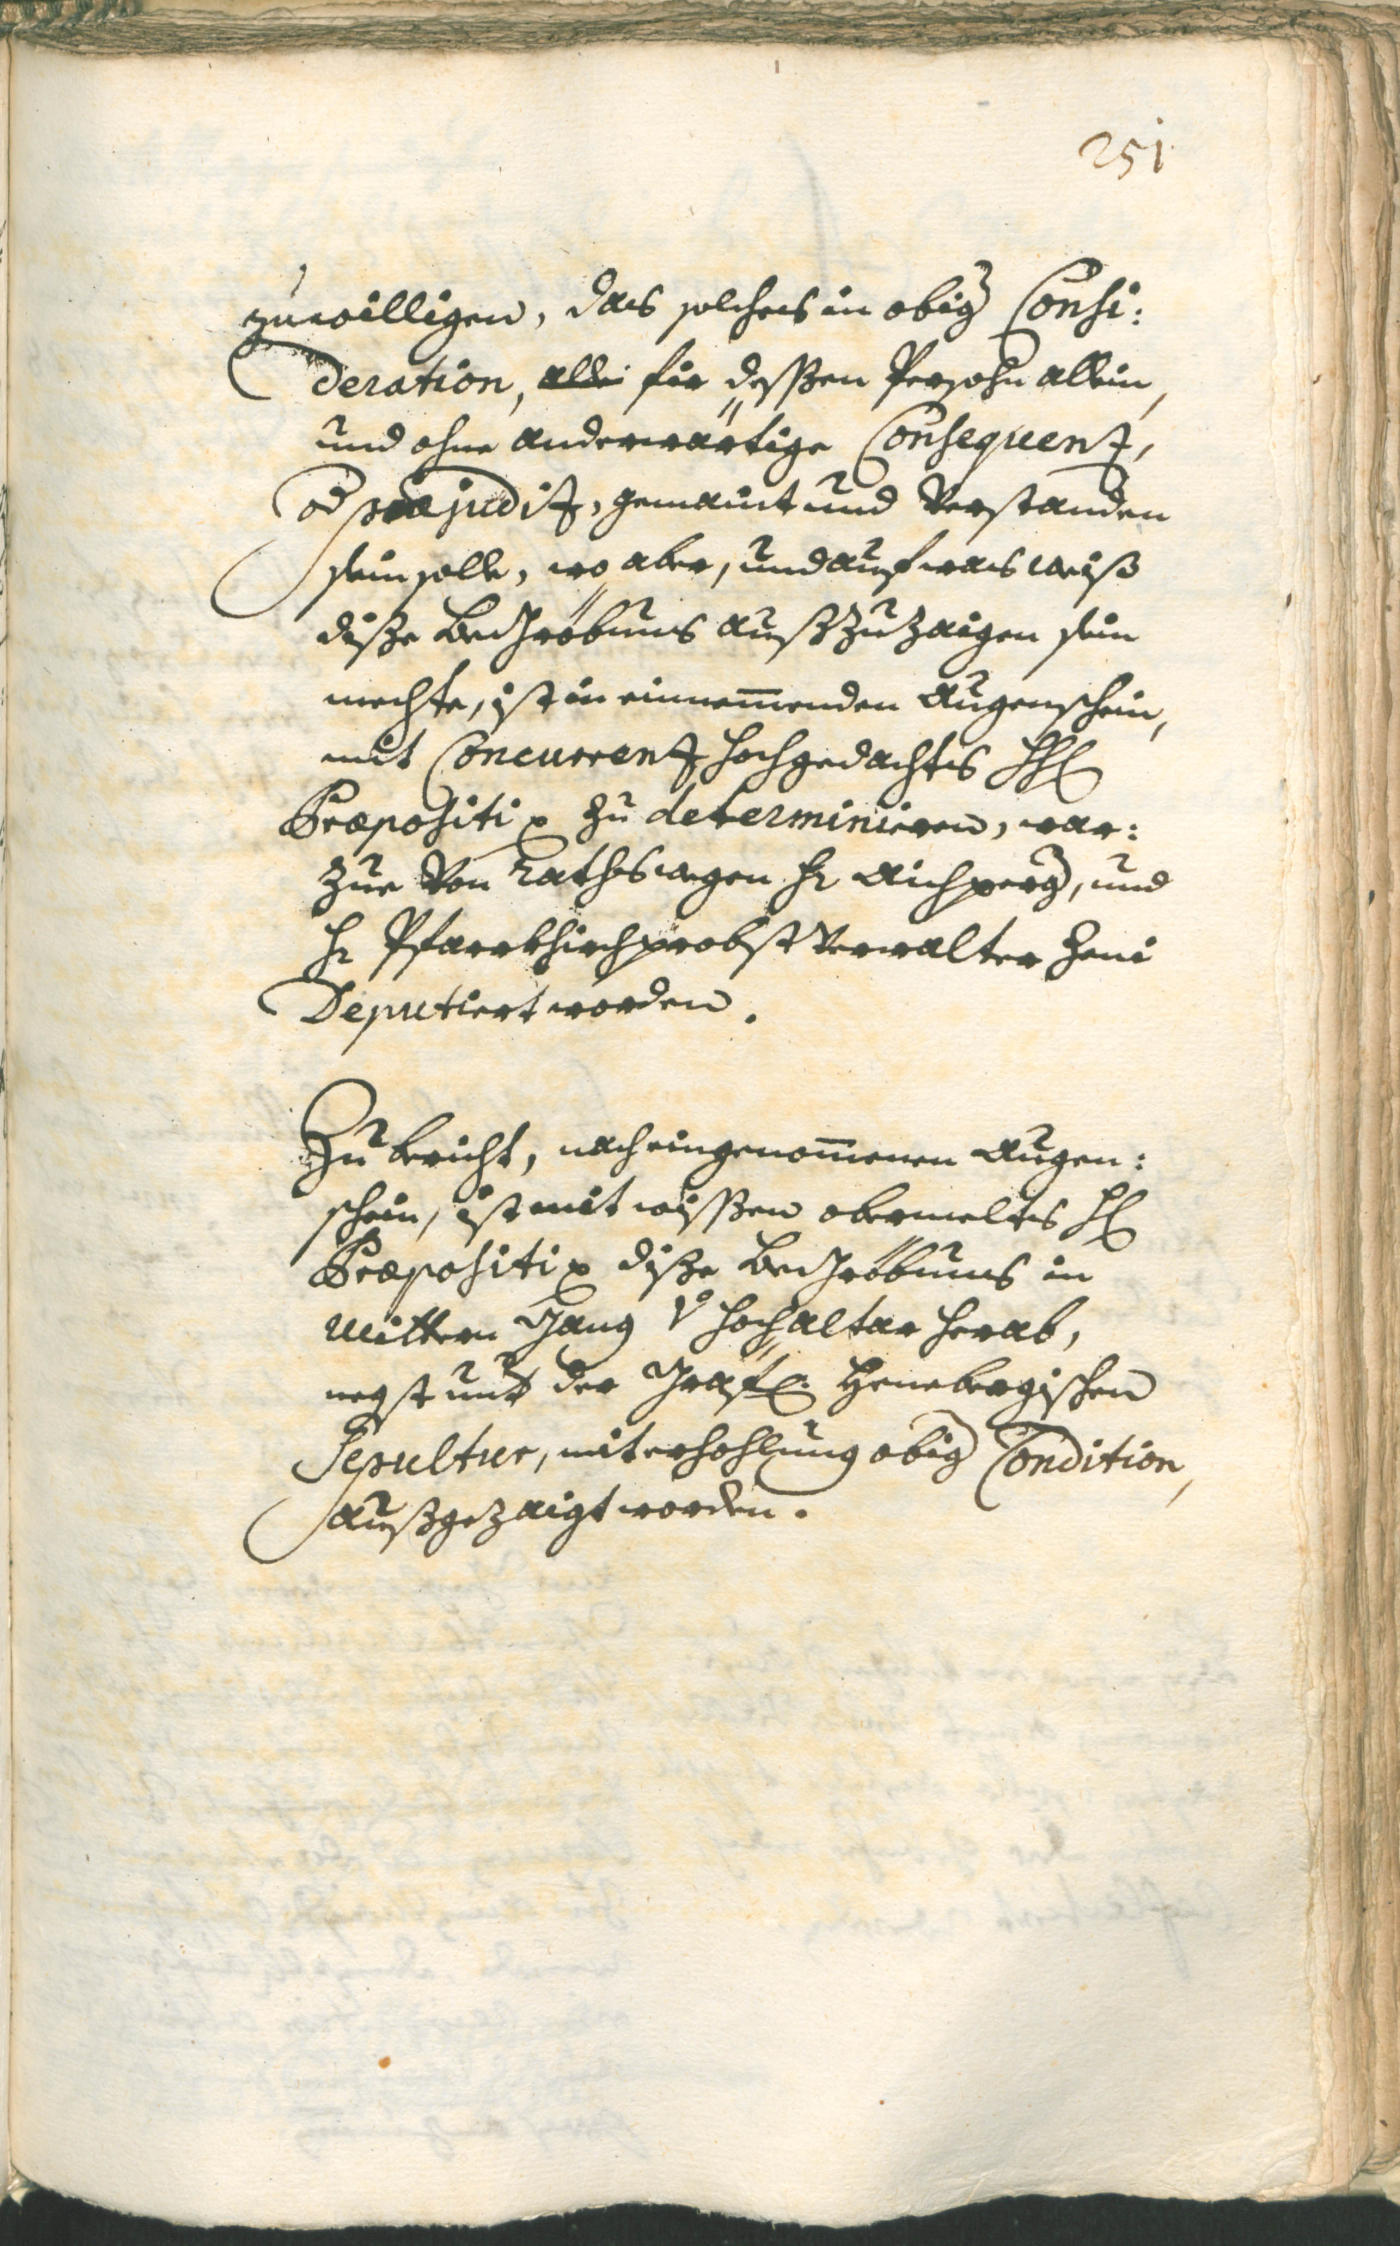 251
zuwilligen, das solches in obig Consi:
deration, allei für dessßen Persohn allein,
und ohne anderwärtige Consequenz,
od præjudiz, gemaint und Verstanden
sein solle, wo aber, und auf was weiß
diße Begröbnus auß zu zaigen sein
mechte, ist in einnem̅enden Augenschein,
mit Concurrenz hochgedachts HH
Præpositi zu determinieren, war:
zue Von Raths wegen Hr Aichperg, und
Hr Pfarrkhirchprobst Verwalter Zeni
Deputiert worden.
Zu bericht, nach eingenom̅enen Augen:
schein, ist mit wißßen obermelts H
Præpositi diße Begröbnus in
mittern Gang V Hochaltar herab,
negst unt der Gräfl: Henebergischen
Sepultur, mit erhohlung obig Condition,
außgezaigt worden.